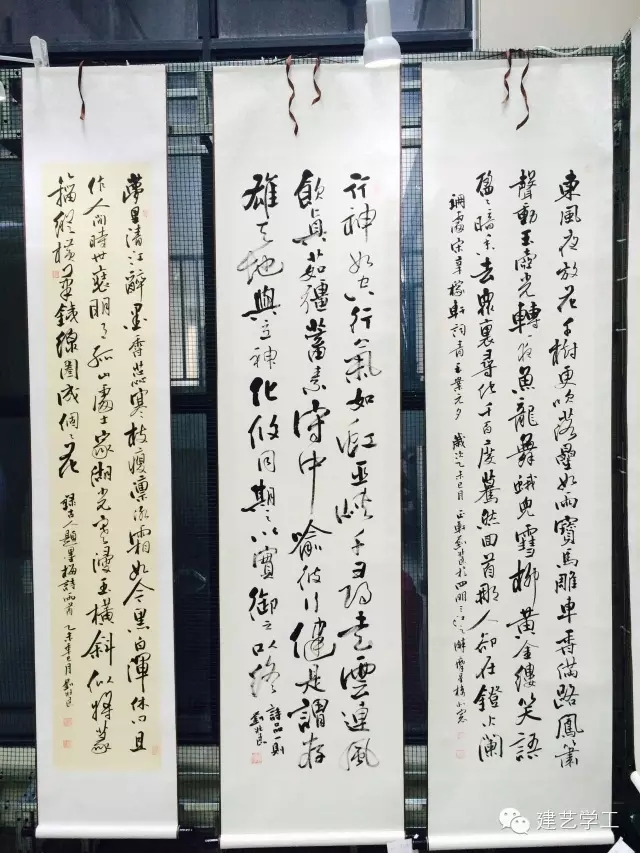 東風夜放花千樹更吹落星如雨寶馬雕車香滿路鳳簫
聲動玉壺光轉一夜魚龍舞蛾兒雪柳黃金縷笑語
盈々暗香去衆裏尋他千百度驀然回首那人卻在鐙火闌
珊處 宋辛稼軒詞青玉案元夕 歲次乙未巳月
行神如空行氣如虹巫峽千尋走雲連風
飲眞茹彊蓄素守中喻彼行健是謂存
雄天地與立神化攸同期之以實御之以終 詩品一則
劉兆良
夢里清江醉墨香蕊寒枝瘦凜冰霜如今黑白渾休問且
作人間時世裝明月孤山處士家湖光寒浸玉橫斜似將篆
籀縱橫筆鐵線圈成個々花 錄古人題墨梅詩兩首 乙未年巳月劉兆良
建艺学工